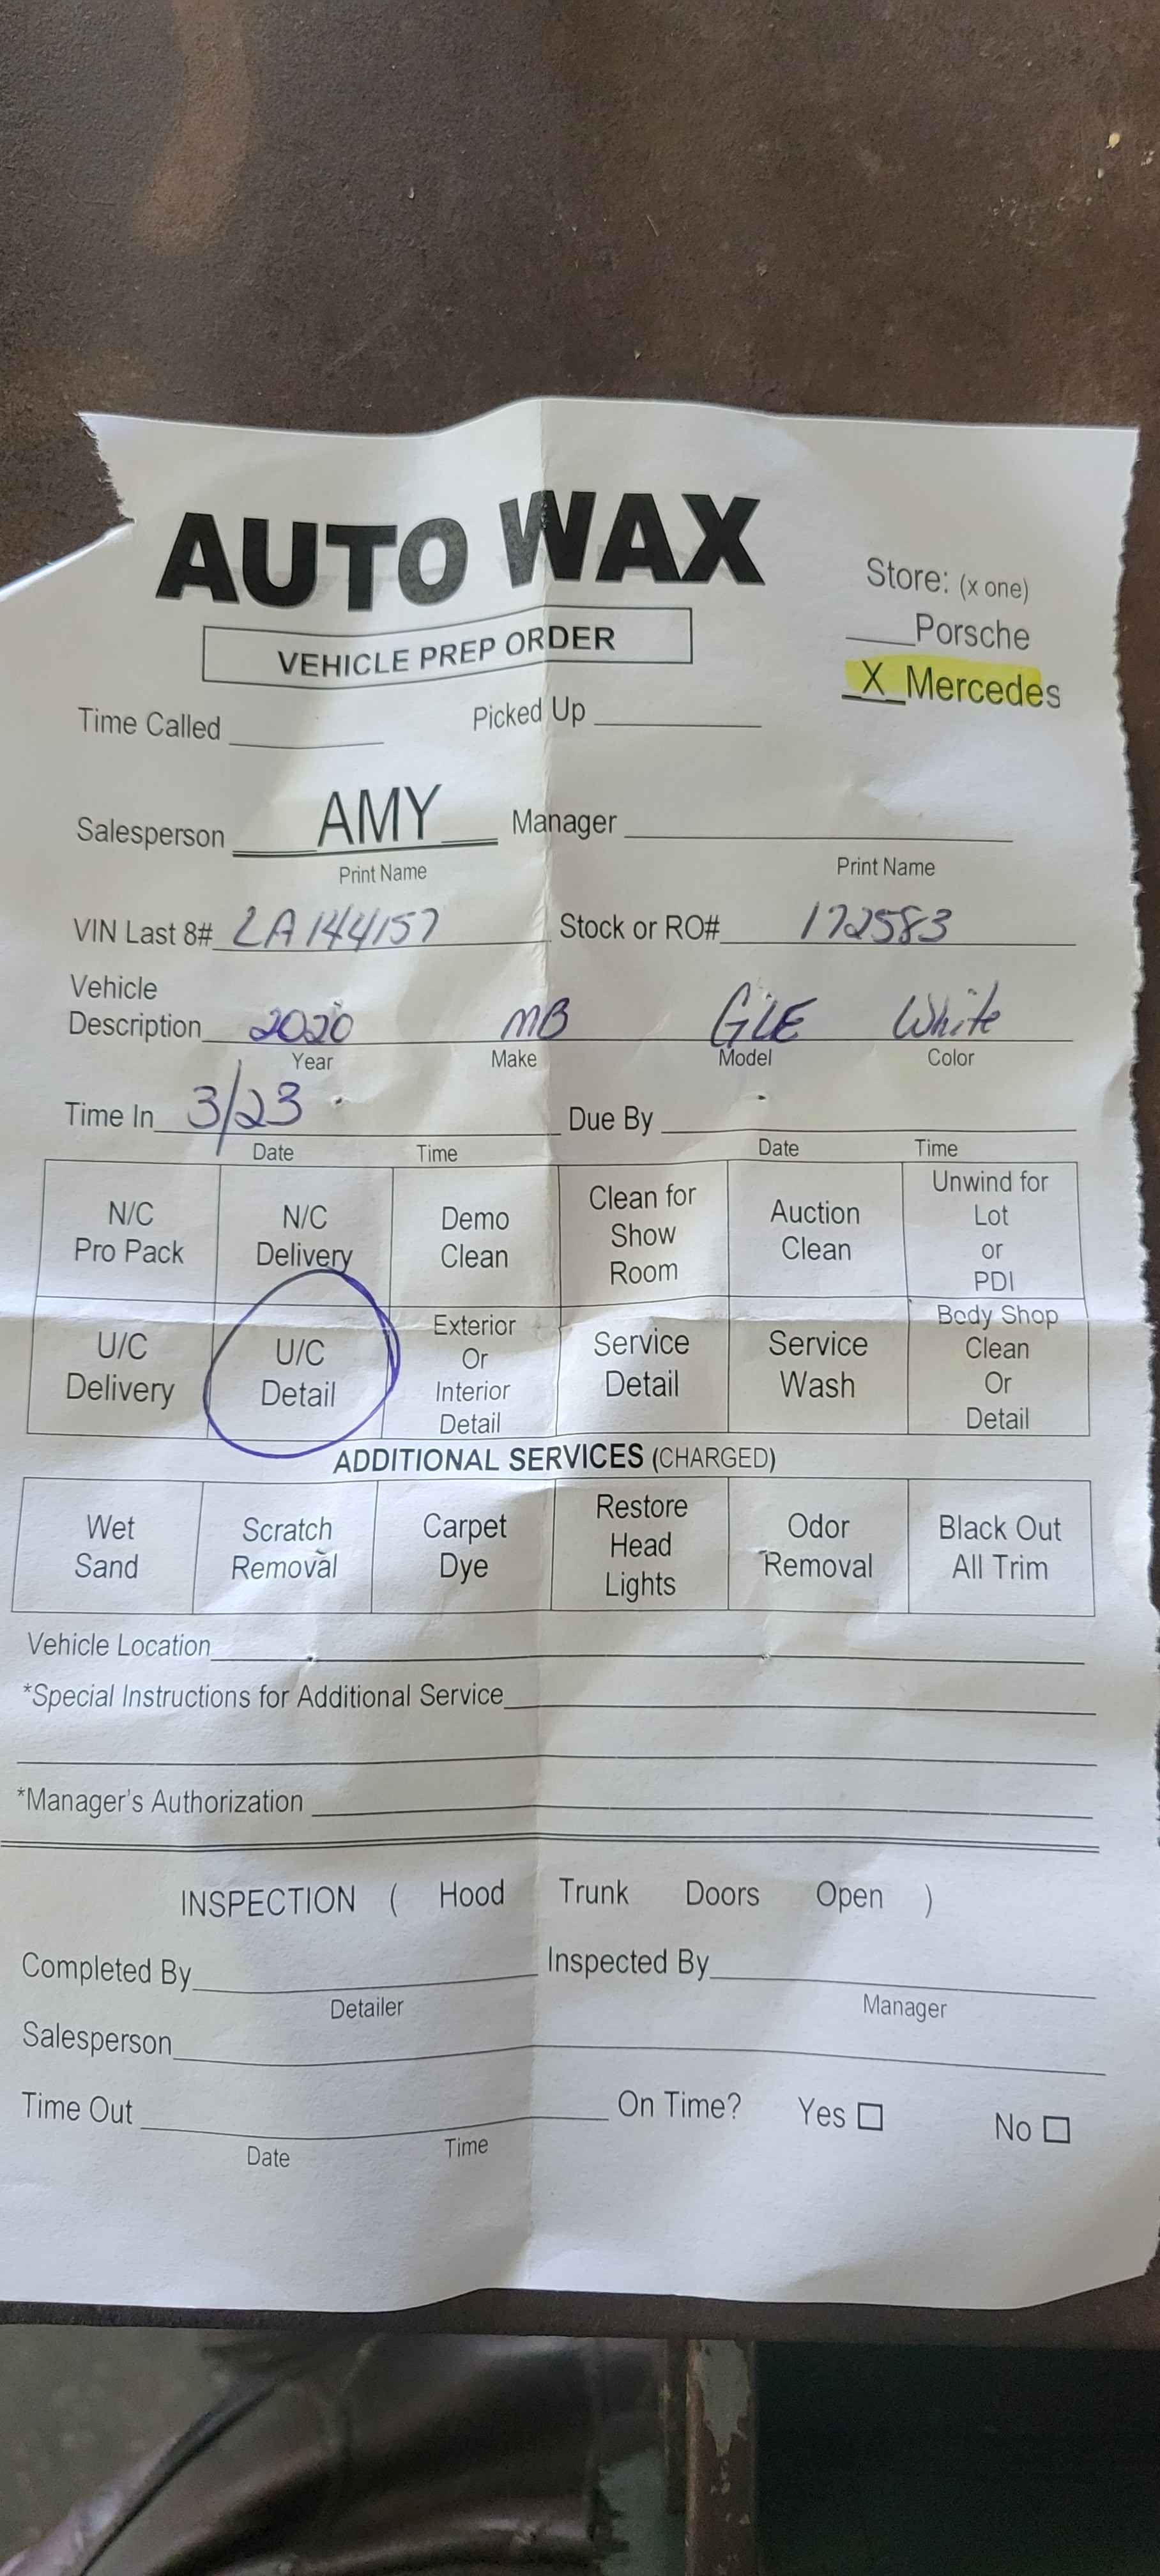 AUTO WAX
VEHICLE PREP ORDER
Store: (x one)
___Porsche
_X_Mercedes
Time Called ___ Picked Up ___
Salesperson AMY Manager ___
Print Name Print Name
VIN Last 8# LA144157 Stock or RO# 172583
Vehicle
Description 2020 MB GLE White
Year Make Model Color
Time In 3/23 Due By ___
Date Time Date Time
N/C Pro Pack N/C Delivery Demo Clean Clean for Show Room Auction Clean Unwind for Lot or PDI
U/C Delivery U/C Detail Exterior Or Interior Detail Service Detail Service Wash Body Shop Clean Or Detail
ADDITIONAL SERVICES (CHARGED)
Wet Sand Scratch Removal Carpet Dye Restore Head Lights Odor Removal Black Out All Trim
Vehicle Location ___
*Special Instructions for Additional Service ___
*Manager's Authorization ___
INSPECTION ( Hood Trunk Doors Open )
Completed By ___ Inspected By ___
Detailer Manager
Salesperson ___
Time Out ___ On Time? Yes ☐ No ☐
Date Time